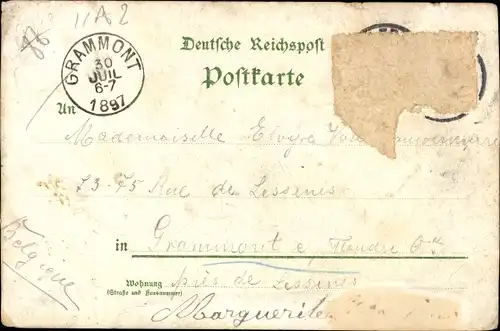 11A2
GRAMMONT
30
JUIL
6-7
1897
Deutsche Reichspost
Postkarte
An
Mademoiselle Elvyre
73-75 Rue de Lessines
Belgique
in Grammont
près de Lessines
Wohnung
(Straße und Hausnummer)
Marguerite